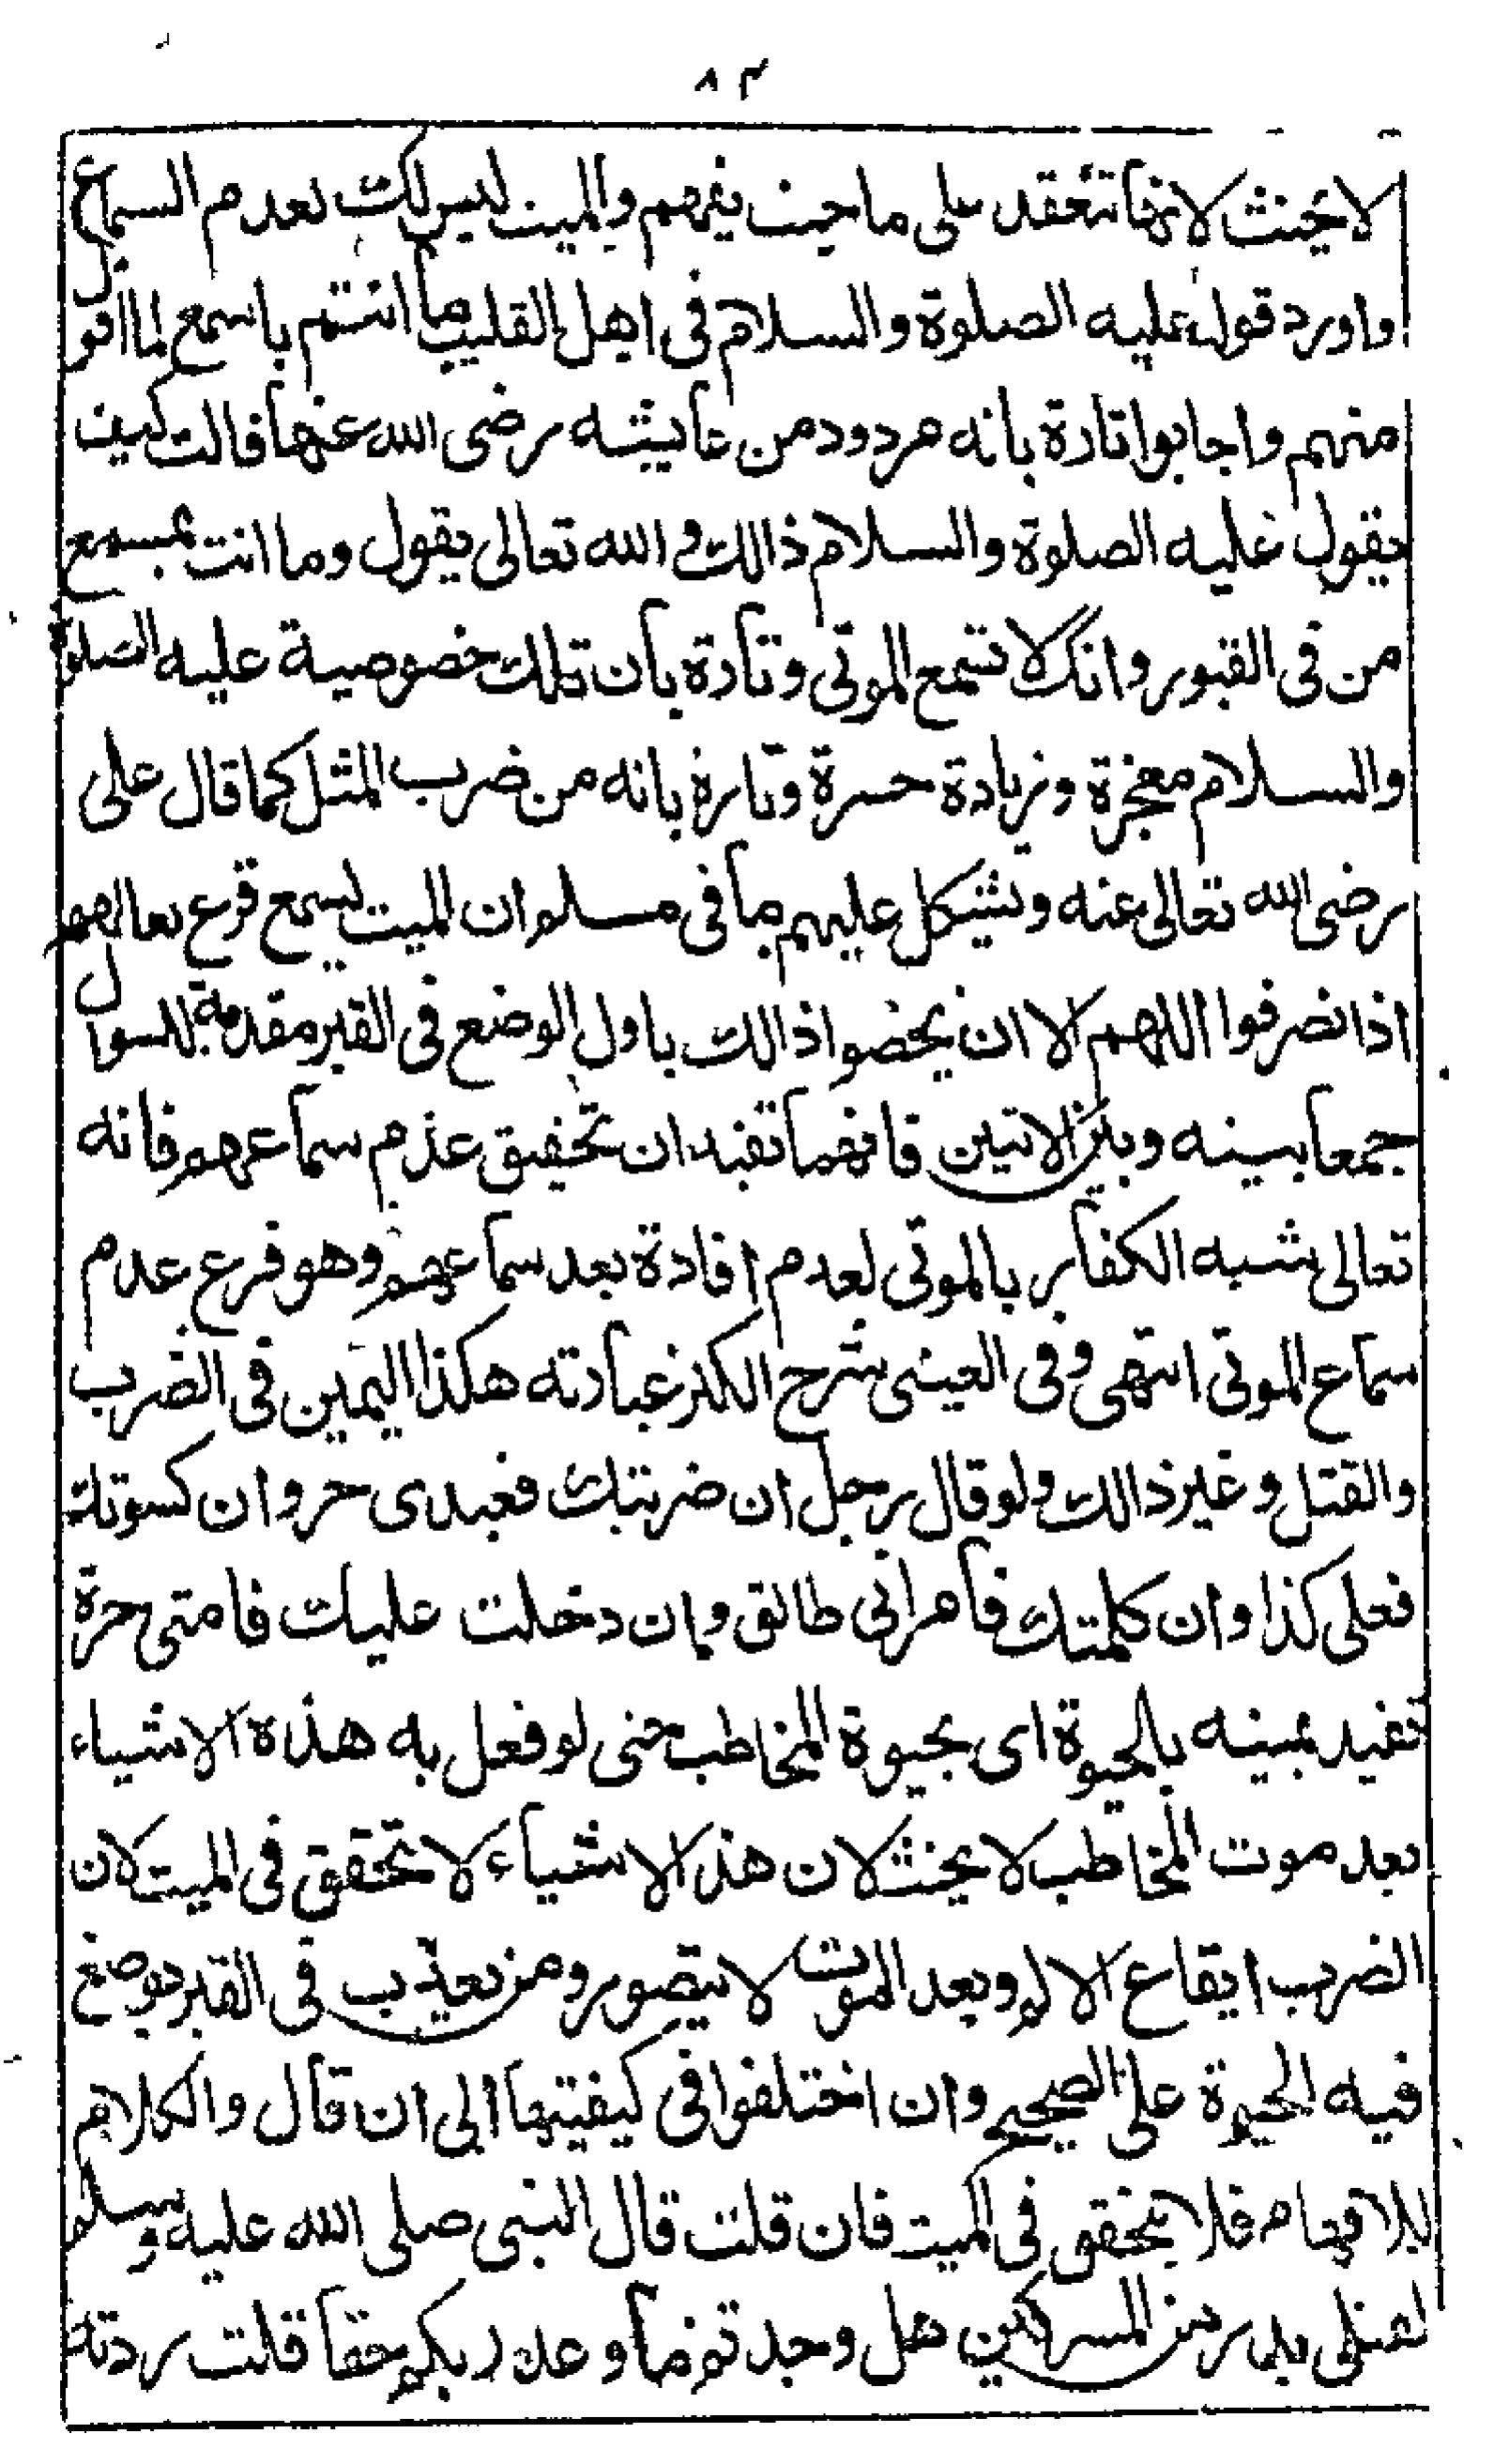 ٨٣
لا يحنث لانها تنعقد على ما حيث يفهم والميت ليس كك لعدم السماع
واورد قوله عليه الصلوة والسلام فى اهل القليب ما انتم باسمع لما اقول
منهم واجابوا تارة بانه مردود من عايشه رضى الله عنها قالت كيف
يقول عليه الصلوة والسلام ذالك و الله تعالى يقول وما انت بمسمع
من فى القبور وانك لا تسمع الموتى وتارة بان تلك خصوصية عليه الصلوة
والسلام معجزة وزيادة حسرة وتارة بانه من ضرب المثل كما قال على
رضى الله تعالى عنه ويشكل عليهم ما فى مسلم ان الميت ليسمع قرع نعالهم
اذا نضرفوا اللهم الا ان يخضوا ذالك باول الوضع فى القبر مقدمة للسوال
جمعا بينه وبين الاتين فانهما تفيدان تحقيق عدم سماعهم فانه
تعالى شبه الكفار بالموتى لعدم افادة بعد سماعهم وهو فرع عدم
سماع الموتى انتهى وفى العينى شرح الكنز عبارته هكذا اليمين فى الضرب
والقتل و غير ذالك ولو قال رجل ان ضربتك فعبدى حر وان كسوتك
فعلى كذا وان كلمتك فامراتى طالق وان دخلت عليك فامتى حرة
تفيد يمينه بالحيوة اى بحيوة المخاطب حتى لو فعل به هذه الاشياء
بعد موت المخاطب لا يحنث لان هذ الاشياء لا تتحقق فى الميت لان
الضرب ايقاع الالم وبعد الموت لا يتصور ومن يعذب فى القبر يوضع
فيه الحيوة على الصحيح وان اختلفوا فى كيفيتها الى ان قال والكلام
للافهام فلا يتحقق فى الميت فان قلت قال النبى صلى الله عليه وسلم
لقتلى بدر من المسركين هل وجدتم ما وعد ربكم حقا قلت ردته